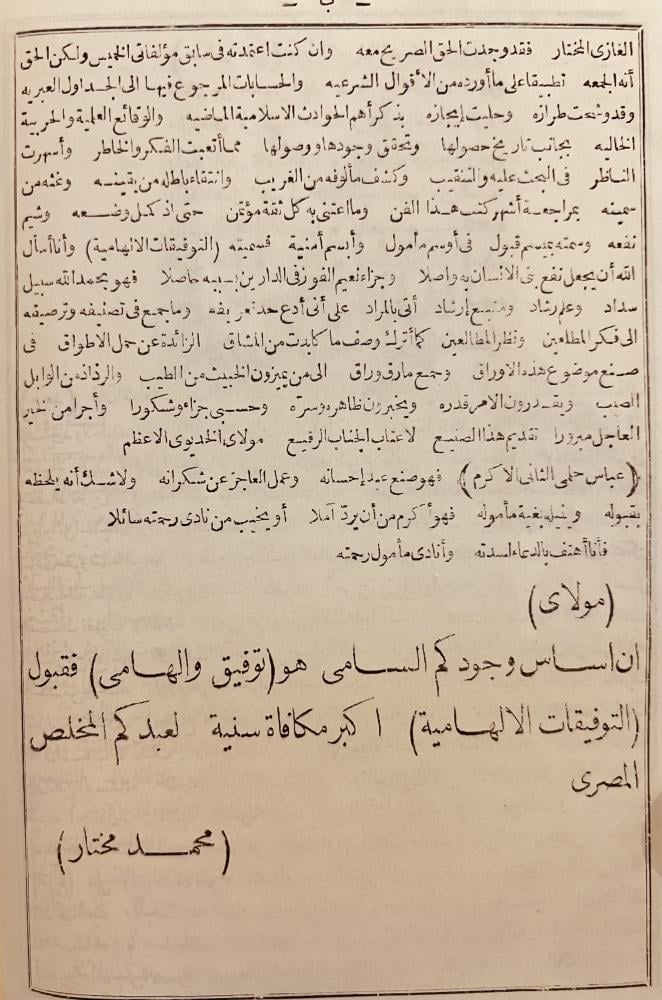 - ب -
الغازى المختار فقد وجدت الحق الصريح معه وان كنت اعتمدته فى سابق مؤلفاتى الخميس ولكن الحق
أنه الجمعه تطبيقا على ما أورده من الأقوال الشرعيه والحسابات المرجوع فيها الى الجداول العبريه
وقد وشحت طرازه وحليت إيجازه بذكر أهم الحوادث الاسلامية الماضيه والوقائع العلمية والحربية
الخاليه بجانب تاريخ حصولها وتحقق وجودها ووصولها مما أتعبت الفكر والخاطر وأسهرت
الناظر فى البحث عليه والتنقيب وكشف مألوفه من الغريب وانتقاء باطله من يقينه وغثه من
سمينه بمراجعة أشهر كتب هذا الفن وما اعتنى به كل ثقة مؤتمن حتى اذ كمل وضعه وشيم
نفعه وسمته بميسم قبول فى أوسم مأمول وأبسم أمنية فسميته (التوفيقات الالهامية) وأنا أسأل
الله أن يجعل نفع بنى الانسان به واصلا وجزاء نعيم الفوز فى الدارين بسببه حاصلا فهو بحمد الله سبيل
سداد وعلم رشاد ومنبع إرشاد أتى بالمراد على أنى أدع حد تعريفه وما جمع فى تصنيفه وترصيفه
الى فكر المطلعين ونظر المطالعين كما أترك وصف ما كابدت من المشاق الزائدة عن حمل الاطواق فى
صنع موضوع هذه الاوراق وجميع مارق وراق الى من يميزون الخبيث من الطيب والرذاذ من الوابل
الصيب ويقدرون الامر قدره ويخبرون ظاهره وسره وحسبى جزاء وشكورا وأجرا من خير
العاجل مبرورا تقديم هذا الصنيع لاعتاب الجناب الرفيع مولاى الخديوى الاعظم
(عباس حلمى الثانى الاكرم) فهو صنع عبد إحسانه وعمل العاجز عن شكرانه ولا شك أنه يلحظه
بقبوله وينيله بغية مأموله فهو أكرم من أن يرد آملا أو يخيب من نادى رحمته سائلا
فأنا أهتف بالدعاء لسدته وأنادى مأمول رحمته
(مولاى)
ان اساس وجودكم السامى هو (توفيق والهامى) فقبول
(التوفيقات الالهامية) اكبر مكافاة سنية لعبدكم المخلص
المصرى
(محمد مختار)